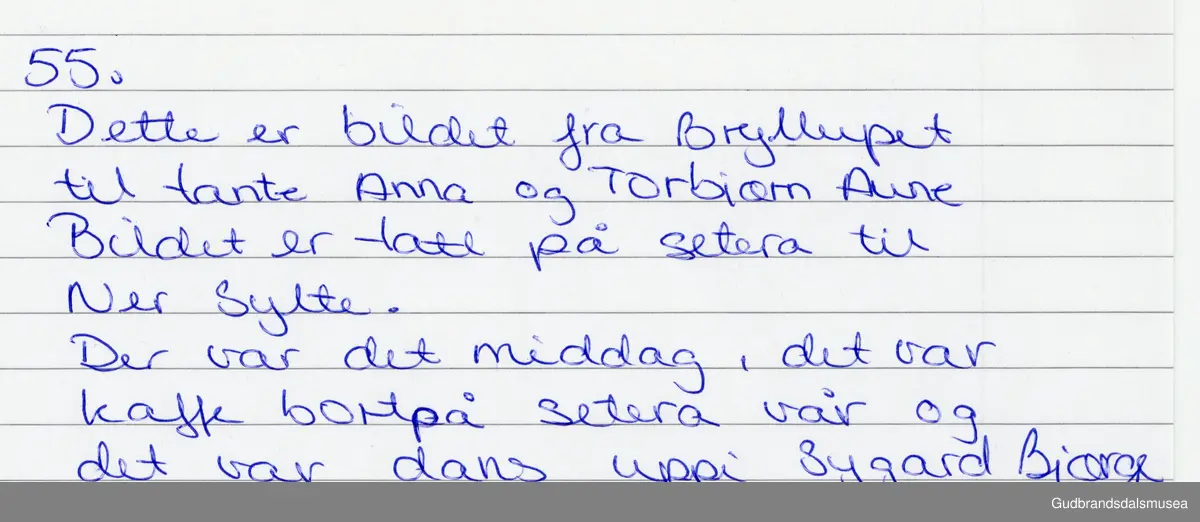 55.
Dette er bildet fra Bryllupet
til tante Anna og Torbiørn Aune
Bildet er tatt på setera til
Ner Sylte.
Der var det middag, det var
kaffe bortpå setera vår og
det var dans uppi Sygard Bjørge
Gudbrandsdalsmusea